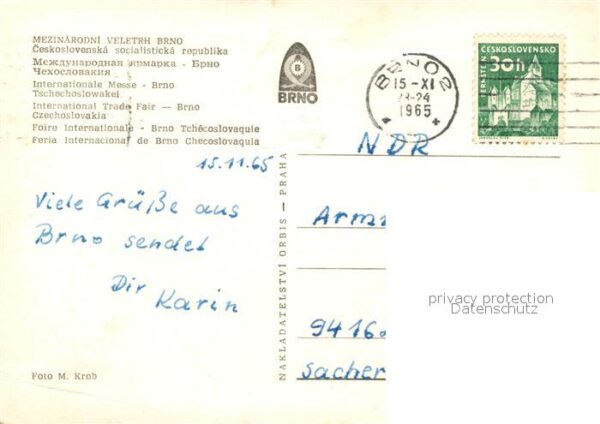 MEZINÁRODNÍ VELETRH BRNO
Československá socialistická republika
Международная ярмарка - Брно
Чехословакия
Internationale Messe - Brno
Tschechoslowakei
International Trade Fair — Brno
Czechoslovakia
Foire Internationale - Brno Tchécoslovaquie
Feria Internacional de Brno Checoslovaquia
B
BRNO
BRNO 2
15 -XI
23-24
1965
ČESKOSLOVENSKO
30h
PERNŠTEJN
15.11.65
Viele Grüße aus
Brno sendet
Dir
Karin
NAKLADATELSTVÍ ORBIS — PRAHA
NDR
Armi
9416
sacher
privacy protection
Datenschutz
Foto M. Krob